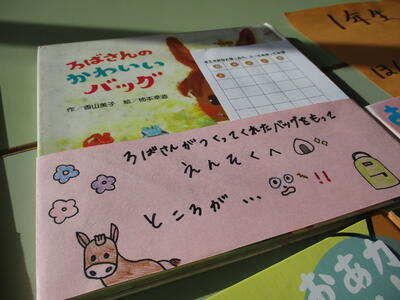 ろばさんの
かわいい
バッグ
作/香山美子 絵/柿本幸造
ろばさんがつくってくれたバッグをもって
えんそくへ
ところが…!!
1年生
おあが